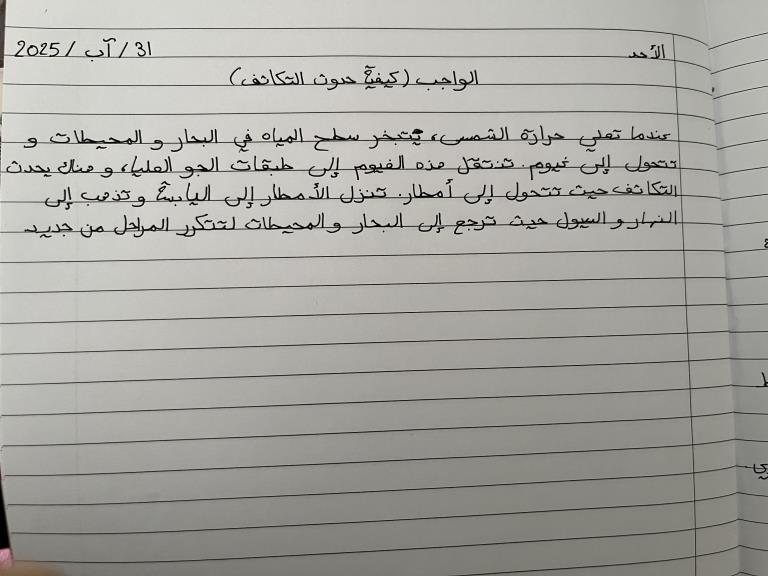 الأحد 31 / آب / 2025
الواجب (كيفية حدوث التكاثف)
عندما تعلي حرارة الشمس، يتبخر سطح المياه في البحار و المحيطات و
تتحول إلى غيوم. تنتقل هذه الغيوم إلى طبقات الجو العليا، و هناك يحدث
التكاثف حيث تتحول إلى أمطار. تنزل الأمطار إلى اليابسة و تذهب إلى
النهار و السيول حيث ترجع إلى البحار و المحيطات لتتكرر المراحل من جديد